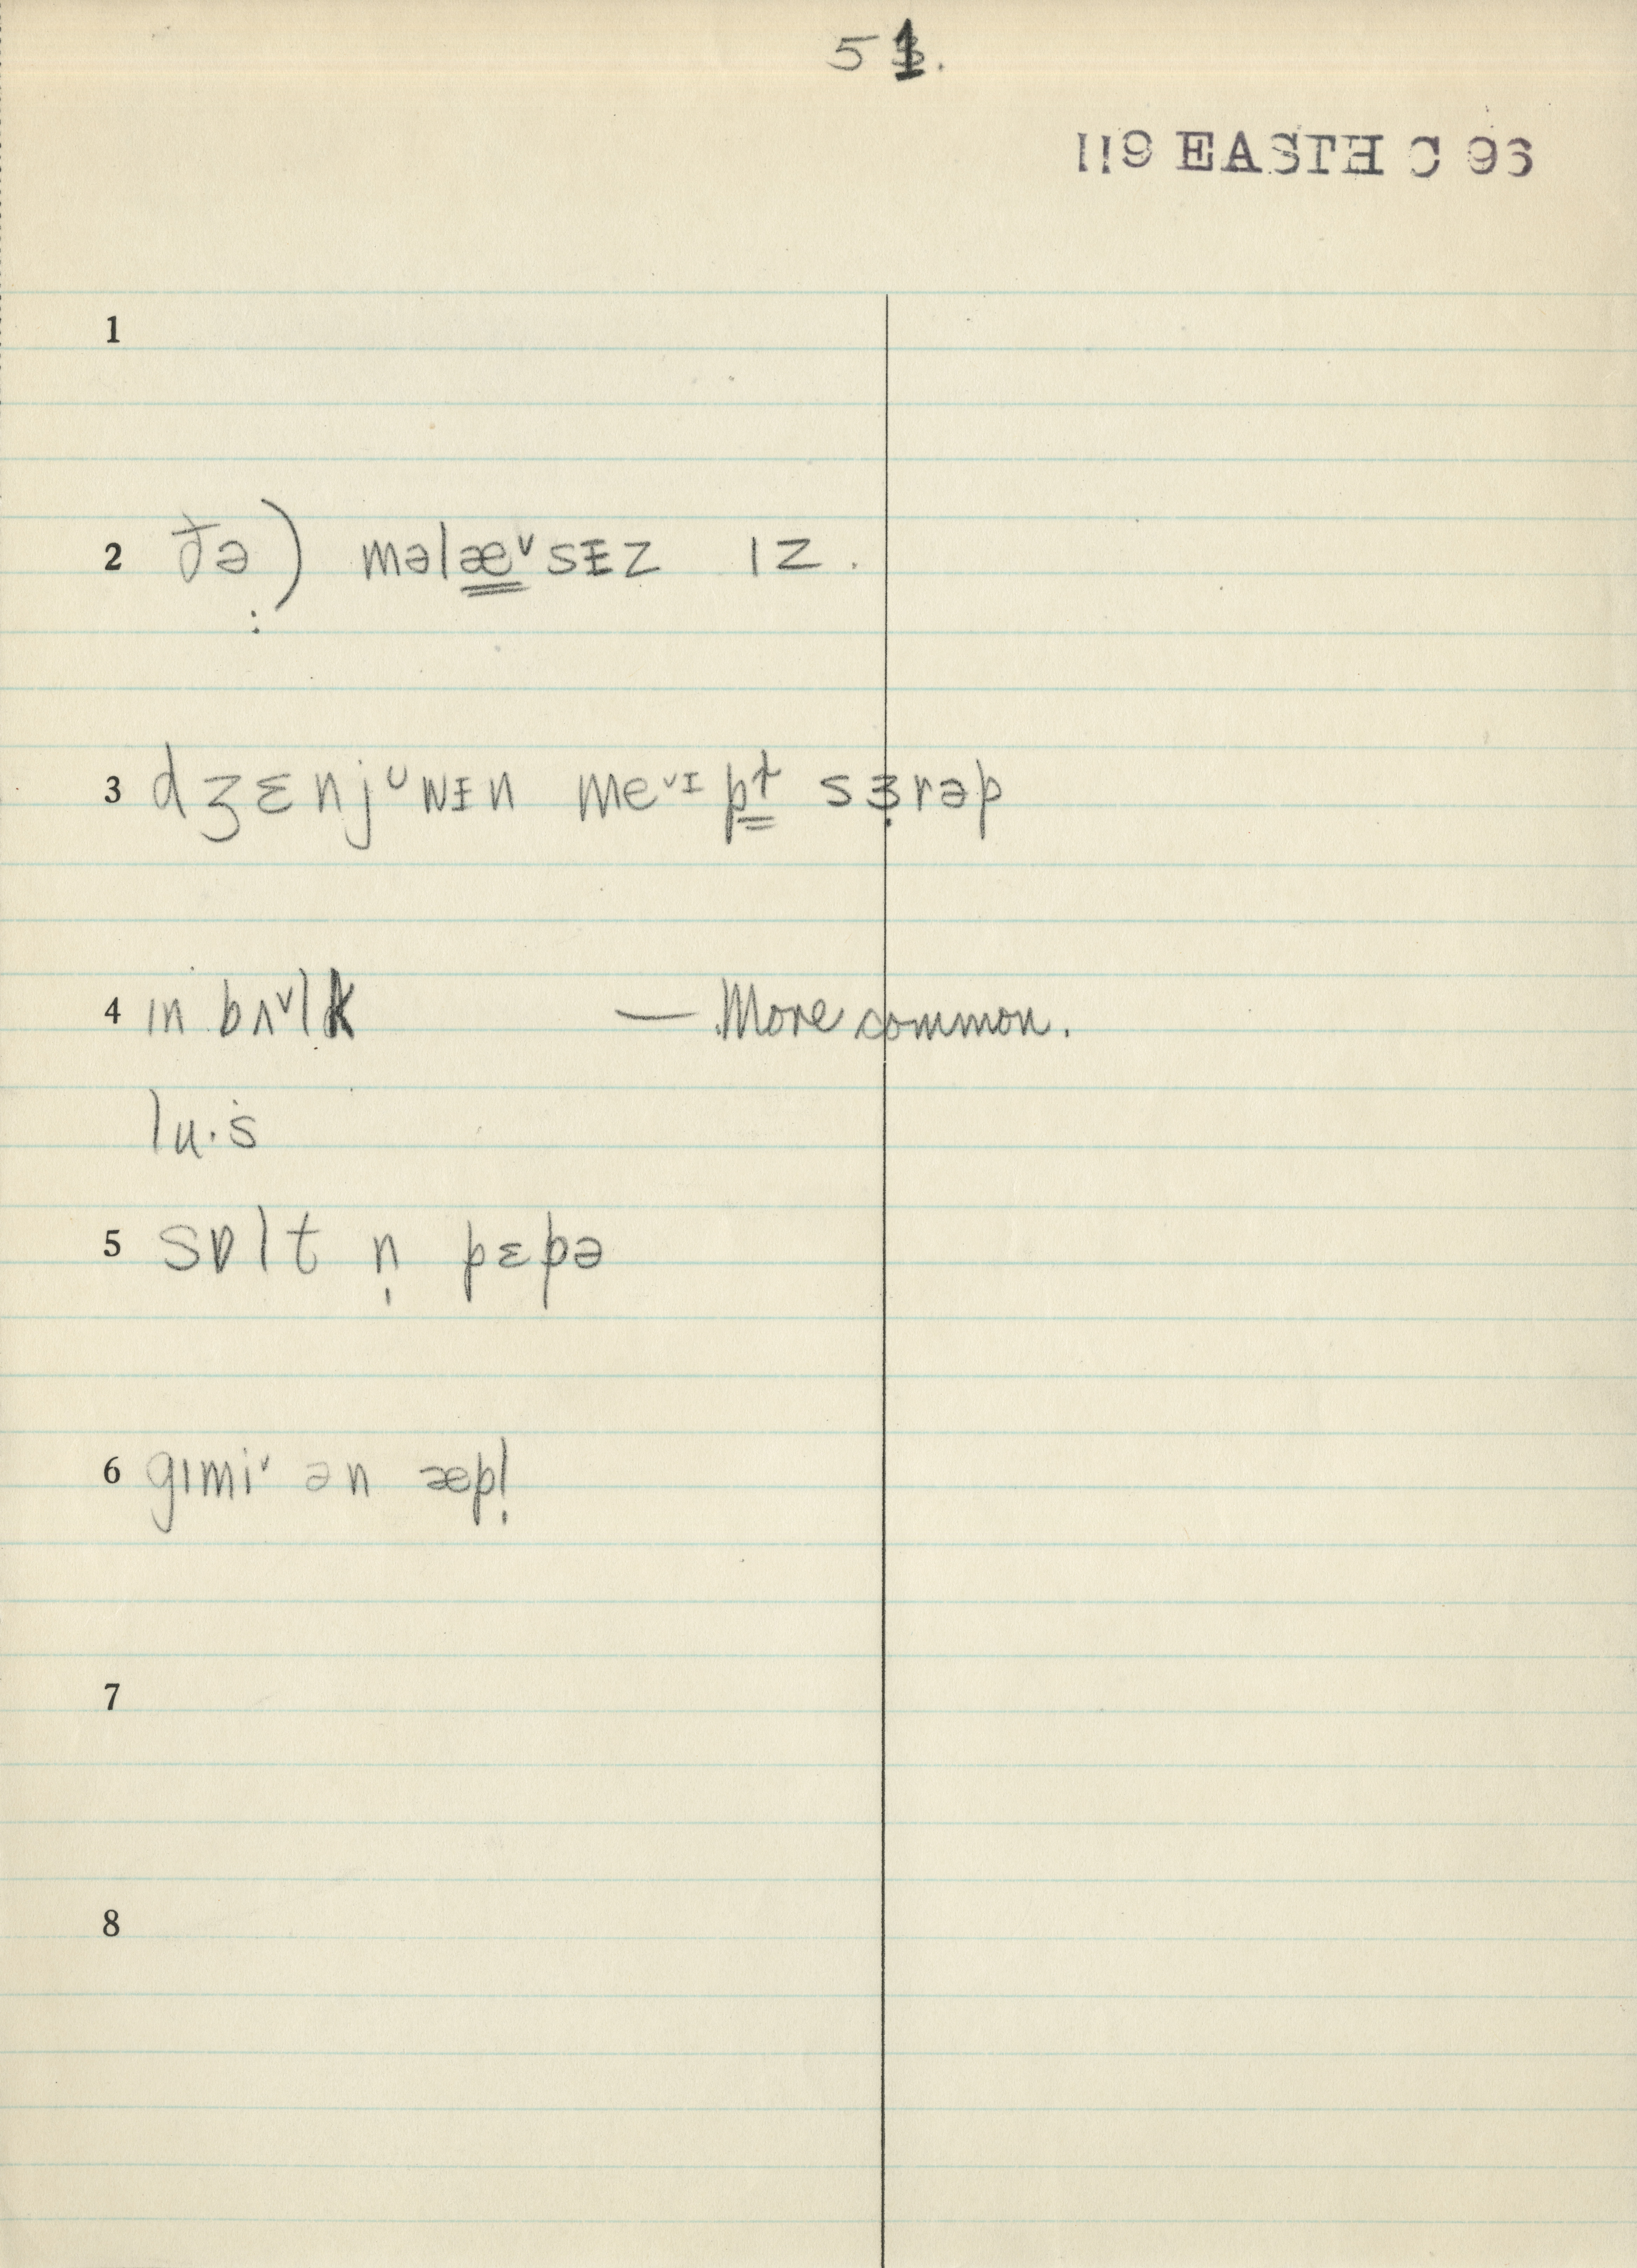 51.
119 EASTH C 96
1
2 ðə̤) məlæ̳ᵛsᵻz ɪz.
3 dʒɛnjᵁwᵻn meᵛᵻp̳ɫ̳ sɜ̣rəp
4 ɪn bʌᵛlk — More common.
lu·s
5 sɒlt n̩ pɛpə
6 gɪmiᵛ ən æpl̩
7
8